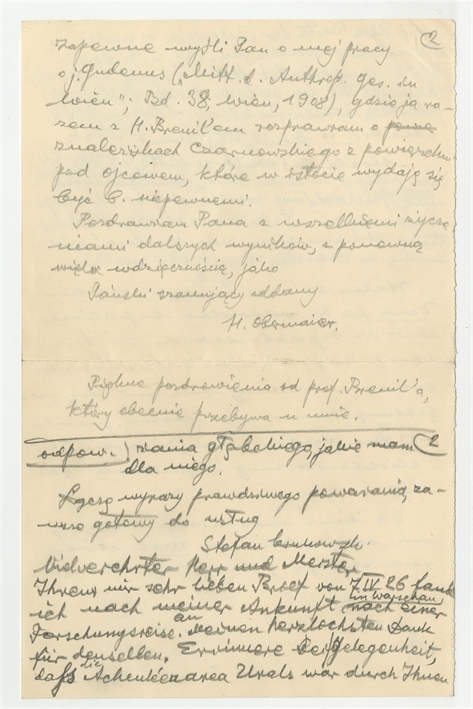 2
zapewne myśli Pan o mej pracy
o j. Gudenus („Mitt. d. Anthrop. Ges. in
Wien"; Bd. 38, Wien, 1908), gdzie ja ra-
zem z H. Breuil'em rozprawiam o
znaleziskach Czarnowskiego z powierzchni
pod Ojcowem, które w istocie wydają się
być b. niepewnemi.
Pozdrawiam Pana z wszelkiemi życze-
niami dalszych wyników, z ponowną
wielką wdzięcznością, jako
Pański szanujący oddany
H. Obermaier.
Piękne pozdrowienia od prof. Breuil'a,
który obecnie przebywa u mnie.
odpow.) zania głębokiego, jakie mam 2
dla niego.
Łączę wyrazy prawdziwego poważania, za-
wsze gotowy do usług
Stefan Krukowski
Vielverehrter Herr und Meister
Ihren mir sehr lieben Brief von 7.IV.26 fand
ich nach meiner Ankunft in Warschau nach einer
Forschungsreise. Meinen herzlichsten Dank
für denselben. Erinnere bei Gelegenheit,
daß die Acheuleenarea Urals war durch Ihnen